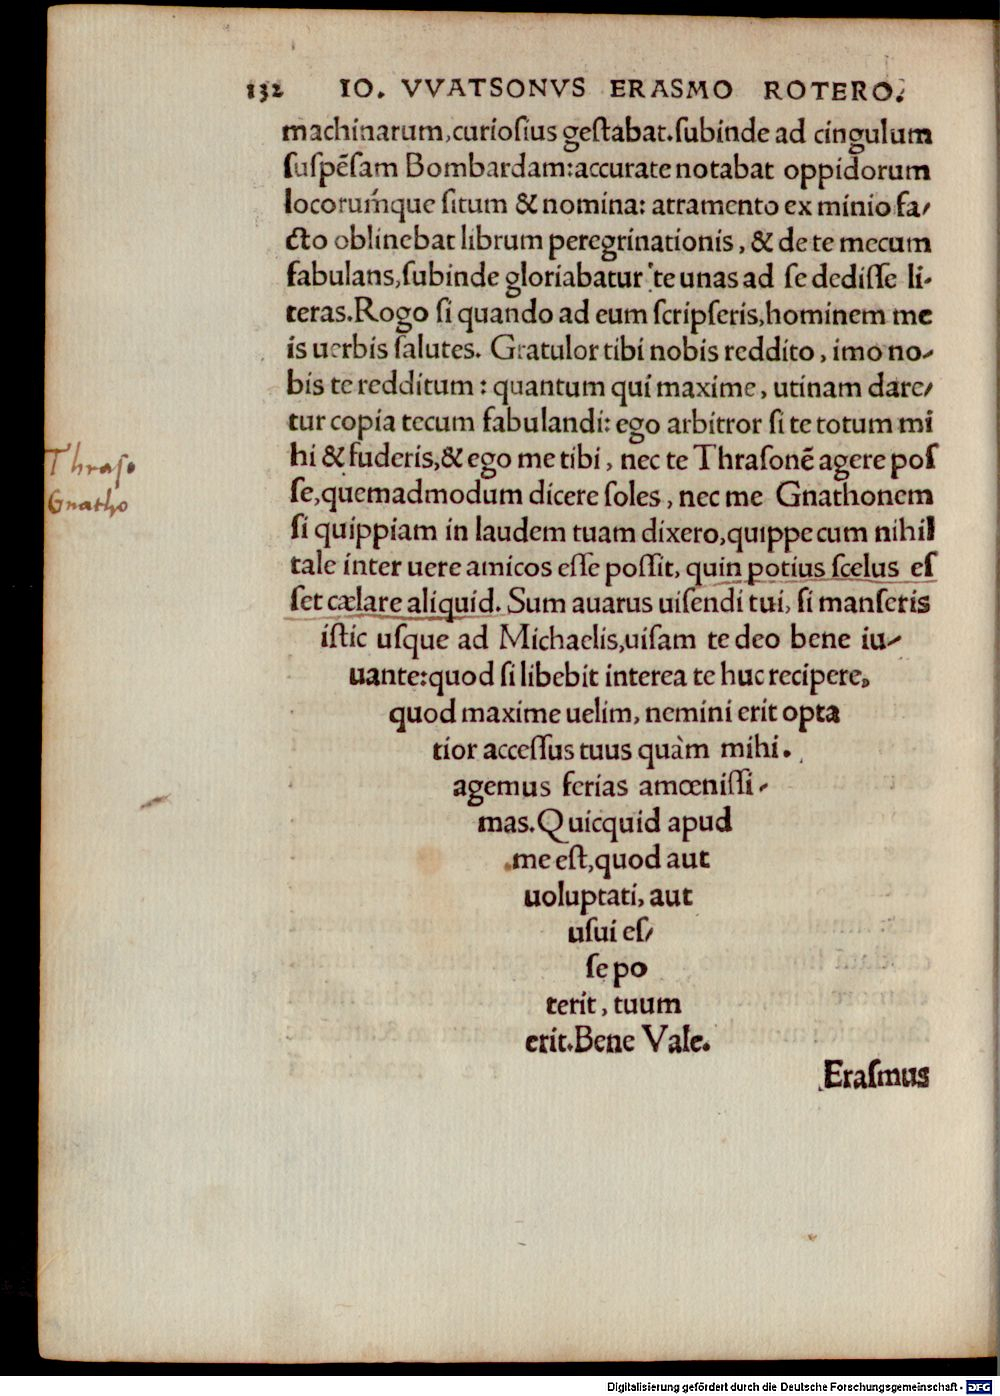 132 IO. VVATSONVS ERASMO ROTERO.
machinarum,curiosius gestabat.subinde ad cingulum
suspēsam Bombardam:accurate notabat oppidorum
locorumq́ue situm & nomina: atramento ex minio fa/
cto oblinebat librum peregrinationis, & de te mecum
fabulans,subinde gloriabatur te unas ad se dedisse li-
teras.Rogo si quando ad eum scripseris,hominem me
is uerbis salutes. Gratulor tibi nobis reddito, imo no-
bis te redditum: quantum qui maxime, utinam dare/
tur copia tecum fabulandi: ego arbitror si te totum mi
Thraso
hi & fuderis,& ego me tibi, nec te Thrasonē agere pos
Gnatho
se,quemadmodum dicere soles, nec me Gnathonem
si quippiam in laudem tuam dixero,quippe cum nihil
tale inter uere amicos esse possit, quin potius scelus es
set cælare aliquid. Sum auarus uisendi tui, si manseris
istic usque ad Michaelis,uisam te deo bene iu-
uante:quod si libebit interea te huc recipere,
quod maxime uelim, nemini erit opta
tior accessus tuus quàm mihi.
agemus ferias amœnissi-
mas.Quicquid apud
me est,quod aut
uoluptati, aut
usui es/
se po
terit, tuum
erit.Bene Vale.
Erasmus
Digitalisierung gefördert durch die Deutsche Forschungsgemeinschaft - DFG